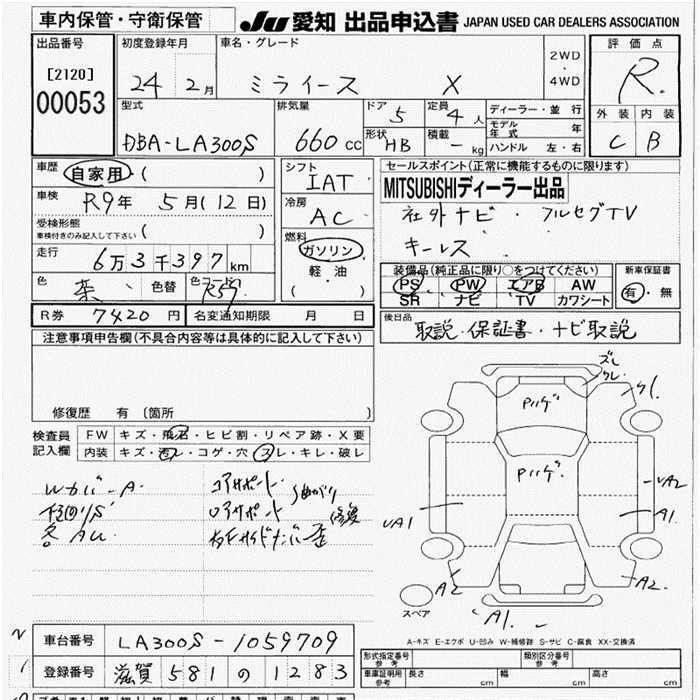 車内保管・守衛保管
JU 愛知 出品申込書 JAPAN USED CAR DEALERS ASSOCIATION
出品番号
[2120]
00053
初度登録年月
24 2月
車名・グレード
ミライース X
2WD
・
4WD
評価点
R.
外装 内装
C B
型式
DBA-LA300S
排気量
660 cc
ドア
5
定員
4人
形状
HB
積載
- kg
ディーラー・並行
モデル年式 年
ハンドル 左・右
車歴
自家用 ( )
車検
R9年 5月(12日)
受検形態
車検付きのみ記入して下さい ( )
走行
6万3千397km
色
茶 色替 色コード R59
シフト
IAT
冷房
AC
燃料
ガソリン
軽・油
( )
セールスポイント(正常に機能するものに限ります)
MITSUBISHIディーラー出品
社外ナビ・フルセグTV
キーレス
装備品(純正品に限り○をつけてください)
PS PW エアB AW
SR ナビ TV カワシート
新車保証書
有・無
R券 7420円 名変通知期限 月 日
後日品
取説・保証書・ナビ取説
注意事項申告欄(不具合内容等は具体的に記入して下さい)
修復歴 有 (箇所 )
検査員
記入欄
FW キズ・飛石・ヒビ割・リペア跡・X要
内装 キズ・汚レ・コゲ・穴・スレ・キレ・破レ
Wカバー A
下回りS
各 AU
コアサポート
ロアサポート
修復
ズレ
クレ
Pハゲ
Pハゲ
UA1
UA2
A1
A2
A2
A1
スペア
A-キズ E-エクボ U-凹み W-補修跡 S-サビ C-腐食 XX-交換済
車台番号 LA300S-1059709
登録番号 滋賀 581 の 1283
形式指定番号
参考
類別区分番号
参考
車庫証明用
参考
長さ cm 幅 cm 高さ cm